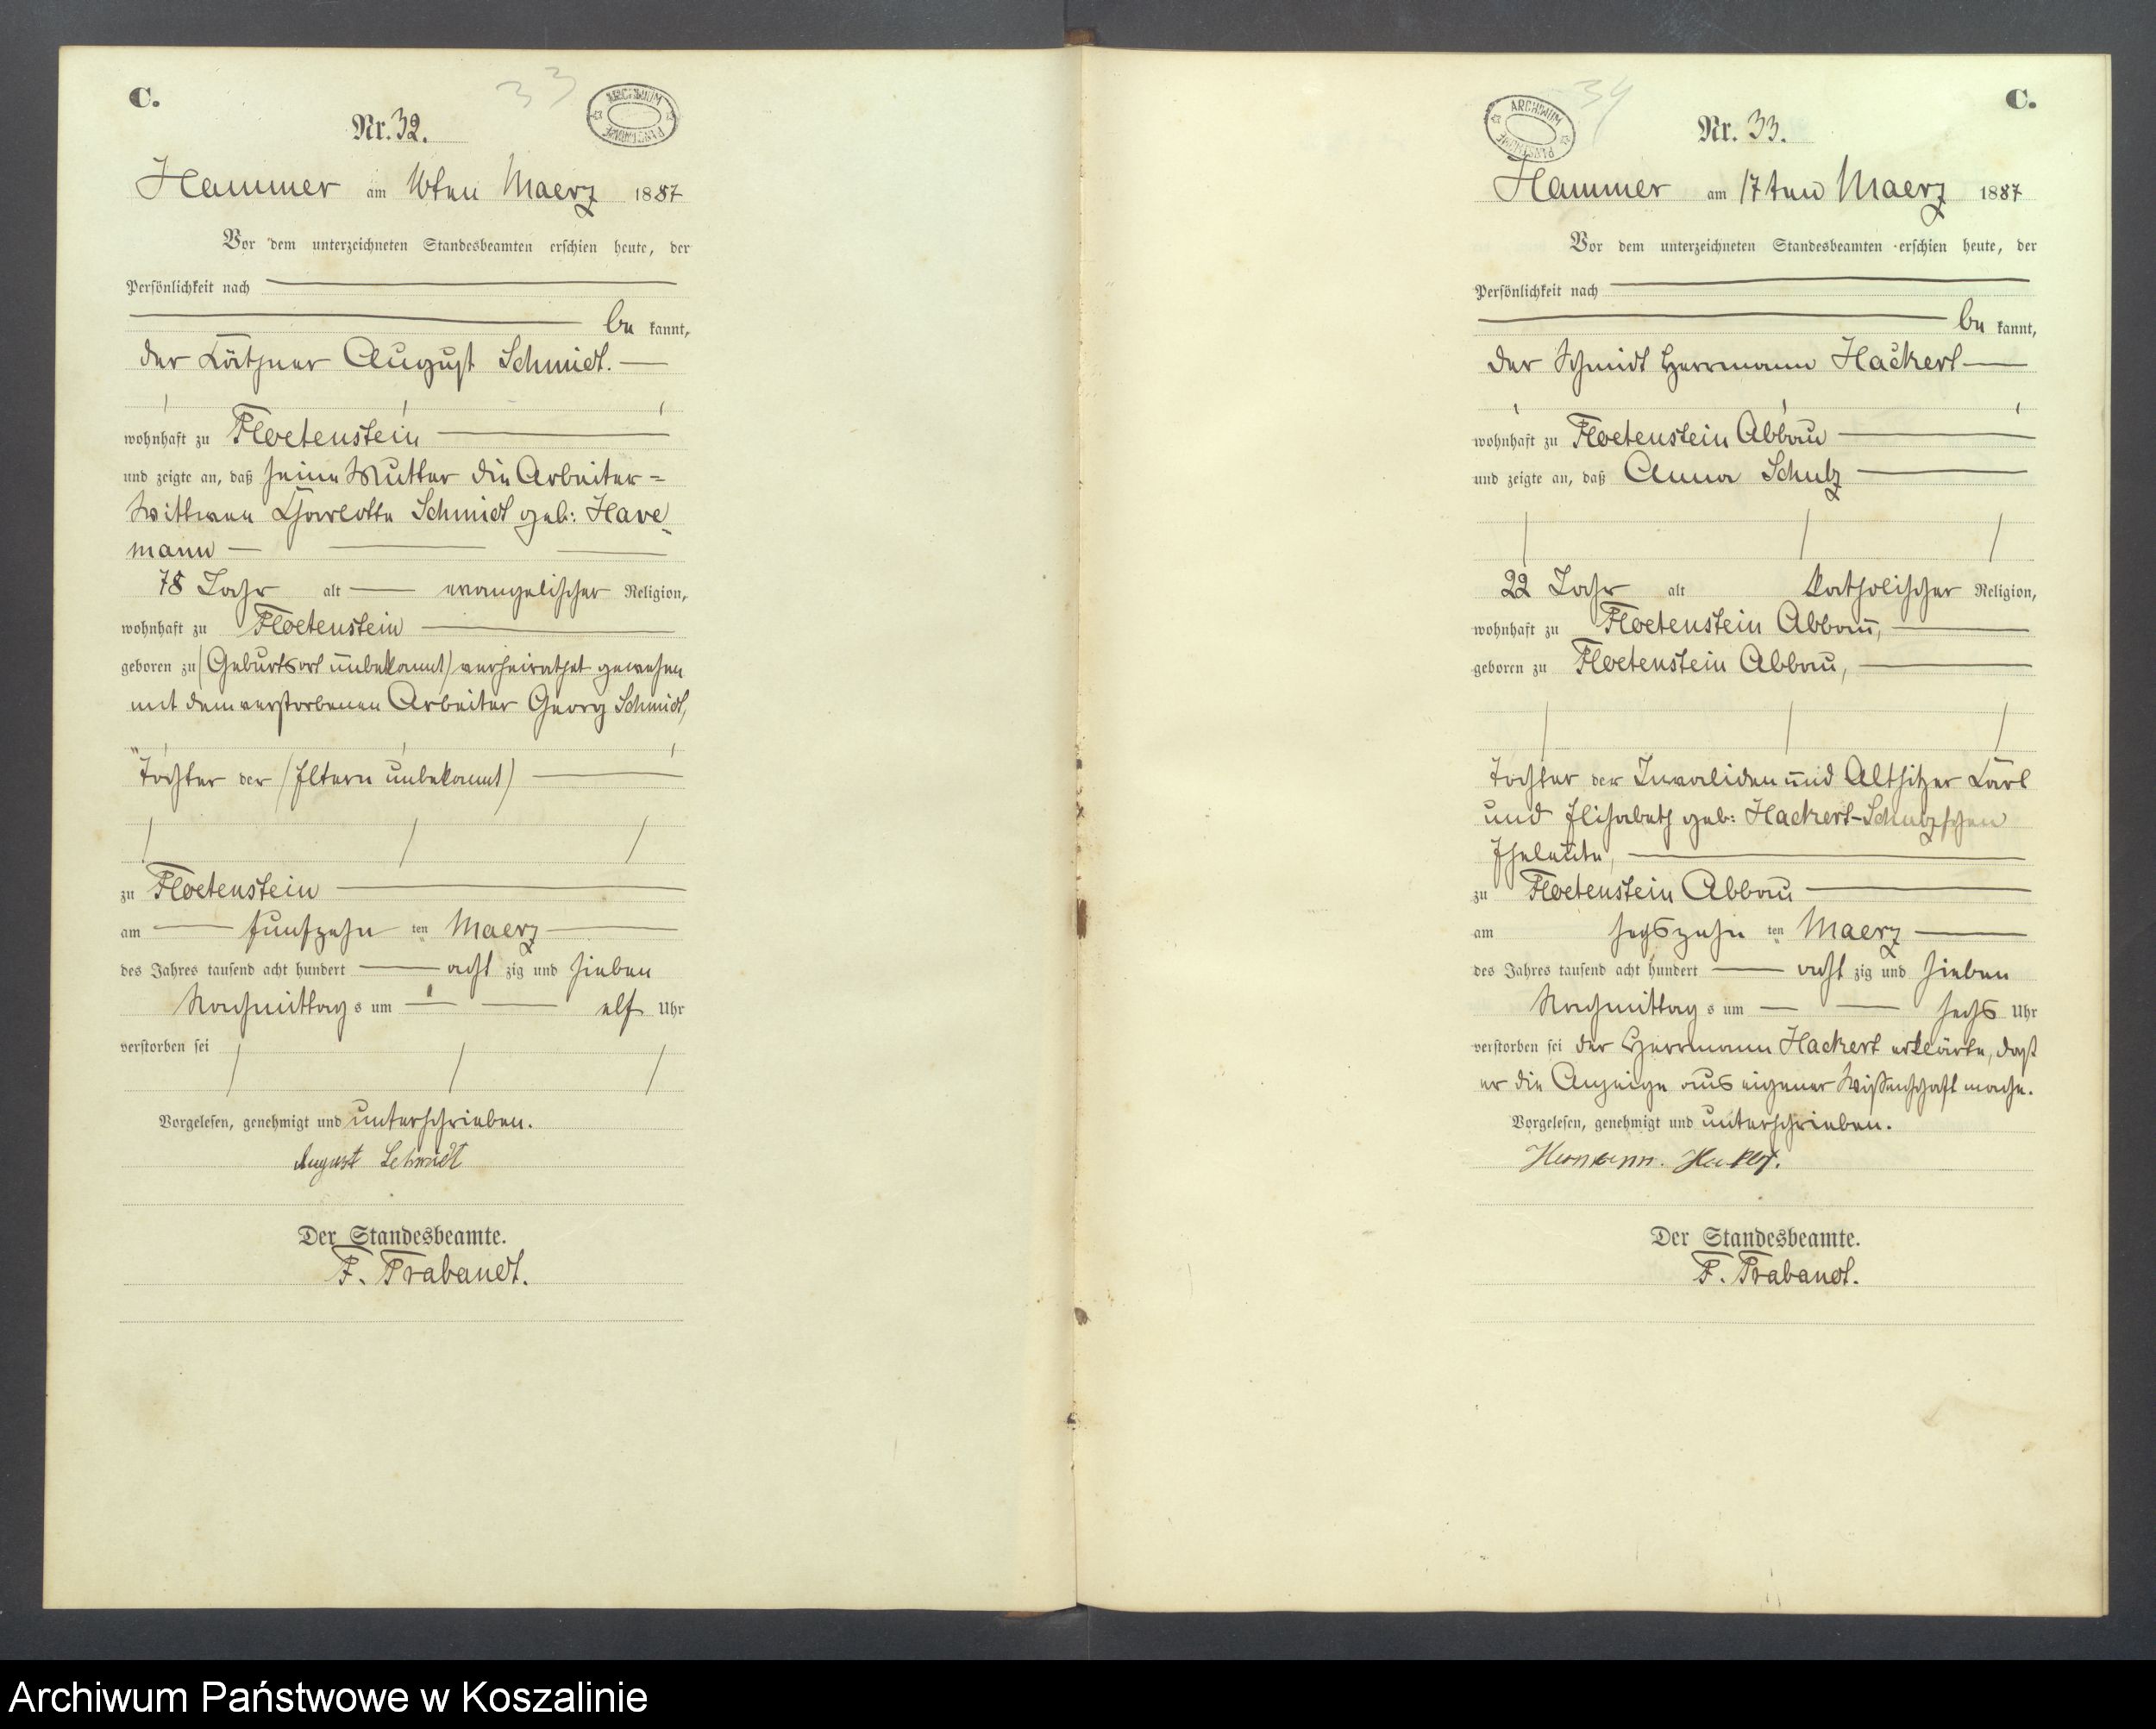 C.
33
ARCHIWUM PAŃSTWOWE
Nr. 32.
Hammer am 16ten Maerz 1887
Vor dem unterzeichneten Standesbeamten erschien heute, der
Persönlichkeit nach
be kannt,
der Käthner August Schmidt.
wohnhaft zu Floetenstein
und zeigte an, daß seine Mutter die Arbeiter=
Wittwee Charlotte Schmidt geb: Have-
mann
78 Jahr alt evangelischer Religion,
wohnhaft zu Floetenstein
geboren zu (Geburtsort unbekannt) verheirathet gewesen
mit dem verstorbenen Arbeiter Georg Schmidt,
Tochter der (Eltern unbekannt)
zu Floetenstein
am funfzehn ten Maerz
des Jahres tausend acht hundert acht zig und sieben
Nachmittag s um elf Uhr
verstorben sei
Vorgelesen, genehmigt und unterschrieben.
August Schmidt
Der Standesbeamte.
F. Trabandt.
C.
34
ARCHIWUM PAŃSTWOWE
Nr. 33.
Hammer am 17ten Maerz 1887
Vor dem unterzeichneten Standesbeamten erschien heute, der
Persönlichkeit nach
be kannt,
der Schmidt Herrmann Hackert
wohnhaft zu Floetenstein Abbau
und zeigte an, daß Anna Schulz
22 Jahr alt katholischer Religion,
wohnhaft zu Floetenstein Abbau,
geboren zu Floetenstein Abbau,
Tochter der Invaliden und Altsitzer Carl
und Elisabeth geb: Hackert-Schulzschen
Eheleute,
zu Floetenstein Abbau
am sechszehn ten Maerz
des Jahres tausend acht hundert acht zig und sieben
Nachmittag s um sechs Uhr
verstorben sei der Herrmann Hackert erklärte, daß
er die Anzeige aus eigener Wissenschaft mache.
Vorgelesen, genehmigt und unterschrieben.
Hermann. Hackert.
Der Standesbeamte.
F. Trabandt.
Archiwum Państwowe w Koszalinie